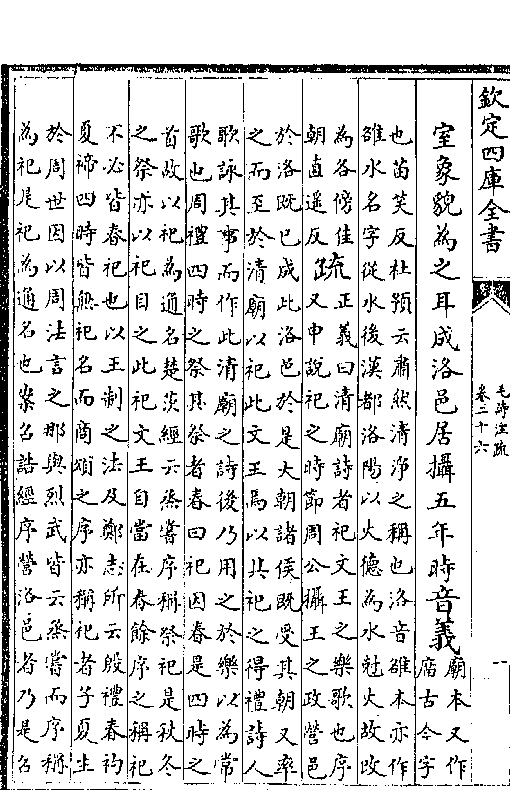 欽定四庫全書
毛詩注疏
卷二十六
一
室象貌為之耳成洛邑居攝五年時音義
廟本又作
庿古今字
也苗笑反杜預云肅然清浄之稱也洛音雒本亦作
雒水名字從水後漢都洛陽以火德為水尅火故改
為各傍隹
朝直遥反
疏
正義曰清廟詩者祀文王之樂歌也序
又申說祀之時節周公攝王之政營邑
於洛既已成此洛邑於是大朝諸侯既受其朝又率
之而至於清廟以祀此文王焉以其祀之得禮詩人
歌詠其事而作此清廟之詩後乃用之於樂以為常
歌也周禮四時之祭其祭者春曰祀因春是四時之
首故以祀為通名楚茨經云烝嘗序稱祭祀是秋冬
之祭亦以祀目之此祀文王自當在春餘序之稱祀
不必皆春祀也以王制之法及鄭志所云殷禮春礿
夏禘四時皆無祀名而商頌之序亦稱祀者子夏生
於周世因以周法言之那與烈武皆云烝嘗而序稱
為祀是祀為通名也案召誥經序營洛邑者乃是召